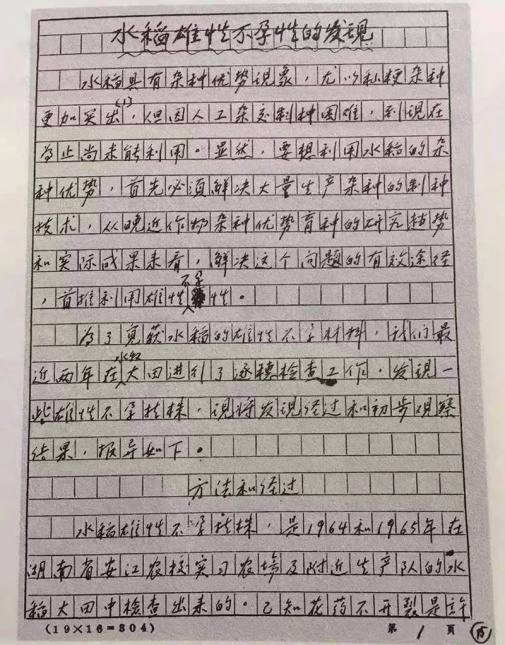 水稻雄性不孕性的发现
水稻具有杂种优势现象，尤以籼粳杂种
更加突出(1)，但因人工杂交制种困难，到现在
为止尚未能利用。显然，要想利用水稻的杂
种优势，首先必须解决大量生产杂种的制种
技术，从晚近作物杂种优势育种的研究趋势
和实际成果来看，解决这个问题的有效途径
，首推利用雄性不孕性。
为了寻获水稻的雄性不孕材料，我们最
近两年在水稻大田进行了逐穗检查工作，发现一
些雄性不孕植株，现将发现经过和初步观察
结果，报导如下。
方法和经过
水稻雄性不孕植株，是1964和1965年在
湖南省安江农校实习农场及附近生产队的水
稻大田中检查出来的。已知花药不开裂是许
(19×16=304) 第 1 頁 15